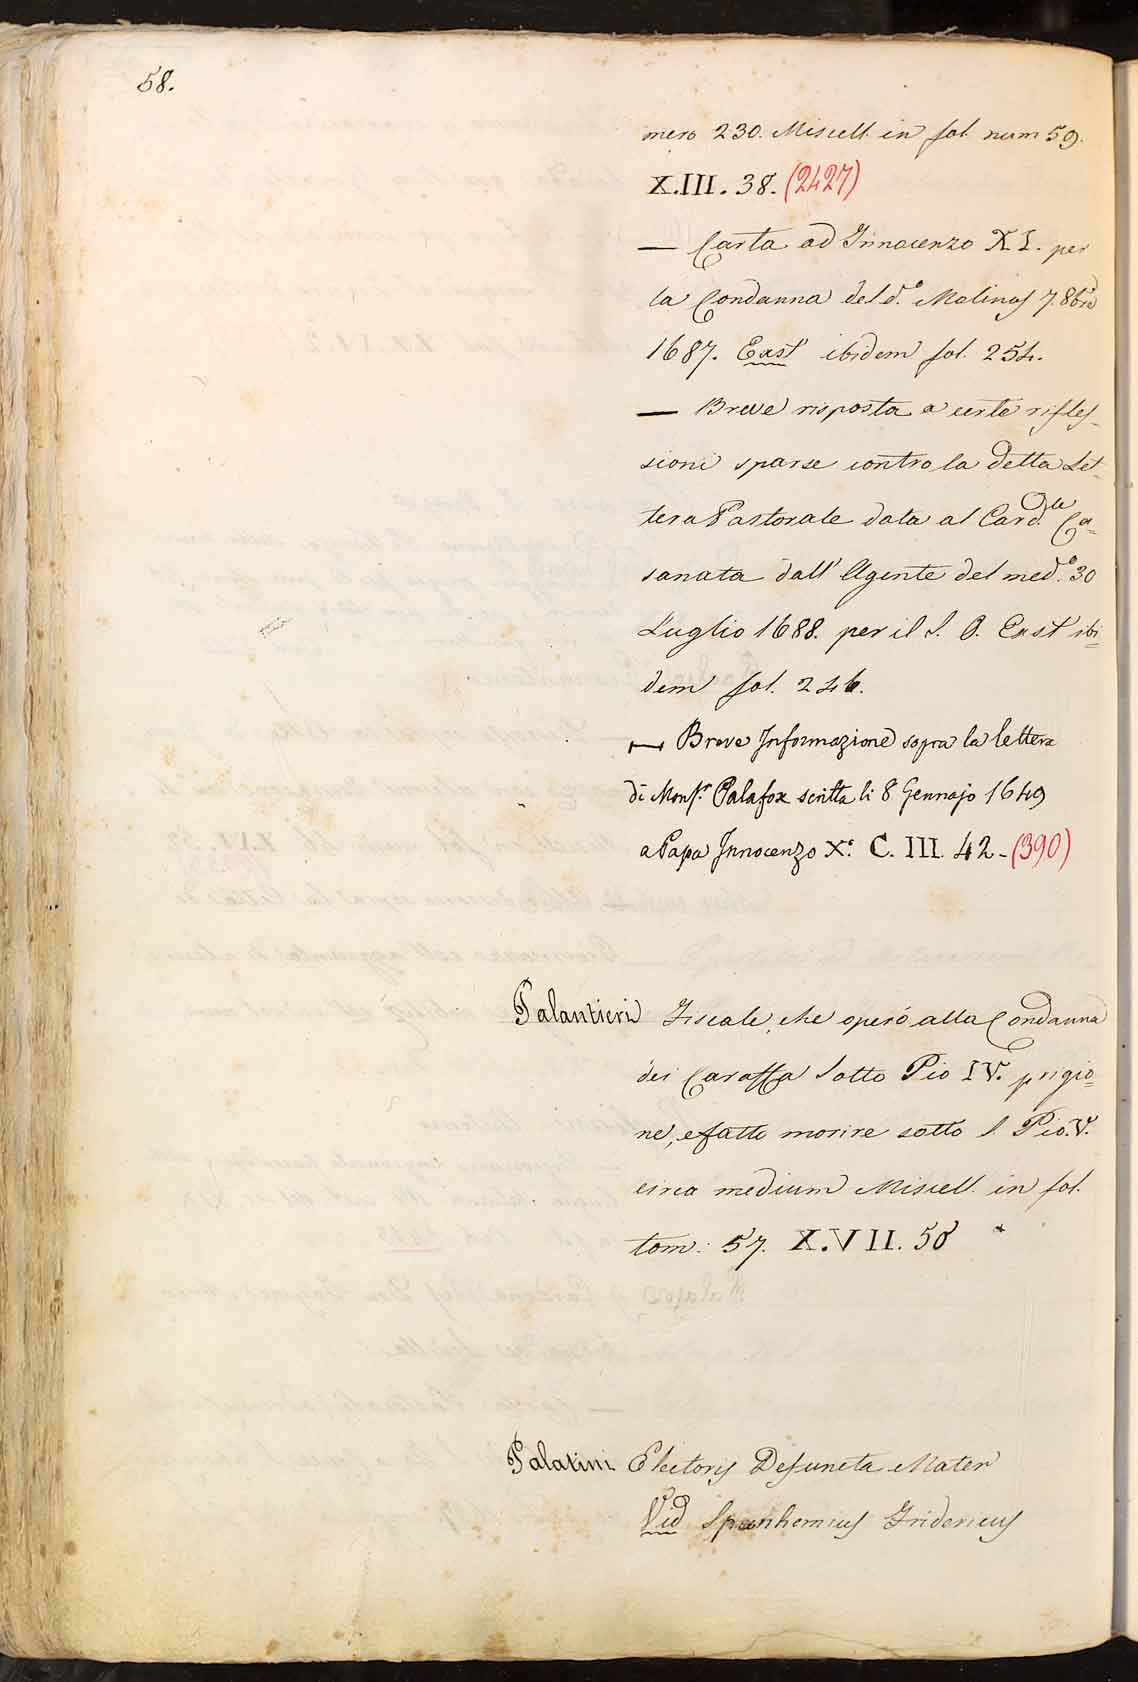 58.
mero 230. Miscell. in fol. num 59.
X.III. 38. (2427)
— Carta ad Innocenzo XI. per
la Condanna del d.º Molinos 7.8bre
1687. Exst' ibidem fol. 254.
— Breve risposta a certe rifles-
sioni sparse contro la detta Let-
tera Pastorale data al Card.le Ca-
sanata dall' Agente del med.º 30
Luglio 1688. per il S. O. Exst' ibi=
dem fol. 246.
— Breve Informazione sopra la lettera
di Mons.r Palafox scritta li 8 Gennajo 1649
a Papa Innocenzo X.º C. III. 42 - (390)
Palantieri Fiscale, che operó alla Condanna
dei Caraffa sotto Pio IV. prigio=
ne, e fatto morire sotto S. Pio. V.
circa medium Miscell. in fol.
tom. 57. X.VII. 58 *
Palatini Electoris Defuncta Mater
Vid Spanhemius Fridericus